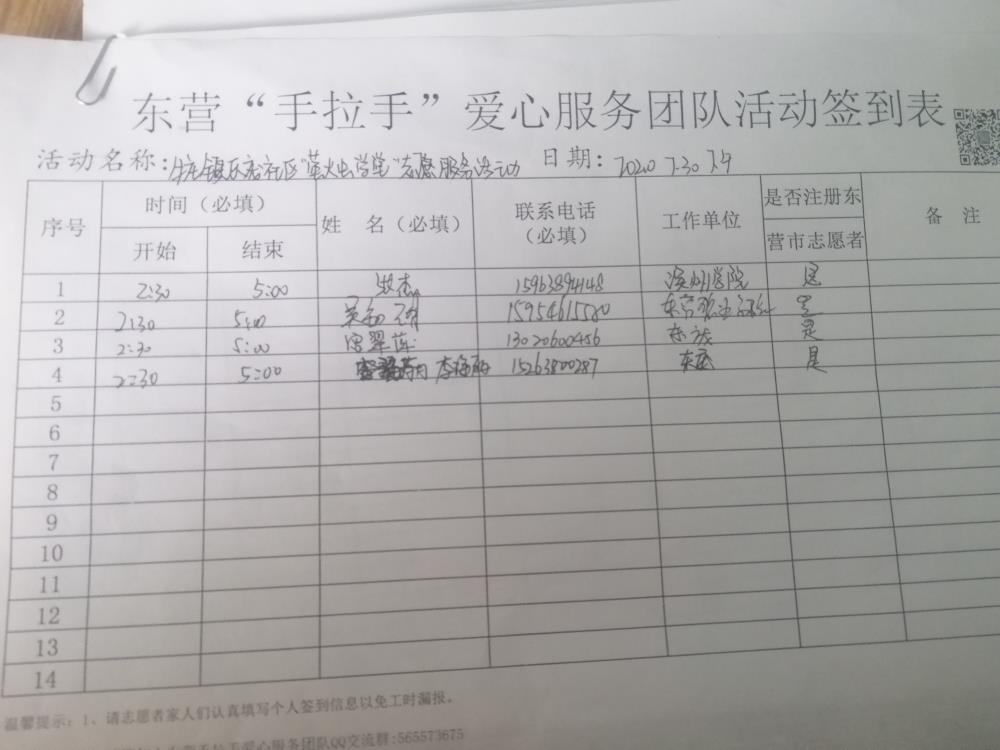 东营“手拉手”爱心服务团队活动签到表
活动名称: 社区"萤火虫学堂"志愿服务活动 日期: 2020 7.30
序号 时间（必填） 姓 名（必填） 联系电话（必填） 工作单位 是否注册东营市志愿者 备 注
开始 结束
1 2:30 5:00 15963894148 滨州医院 是
2 2:30 5:00 15954615580 是
3 2:30 5:00 13020600456 是
4 2:30 5:00 15263800287 是
5
6
7
8
9
10
11
12
13
14
温馨提示：1、请志愿者家人们认真填写个人签到信息以免工时漏报。
手拉手爱心服务团队QQ交流群:565573675